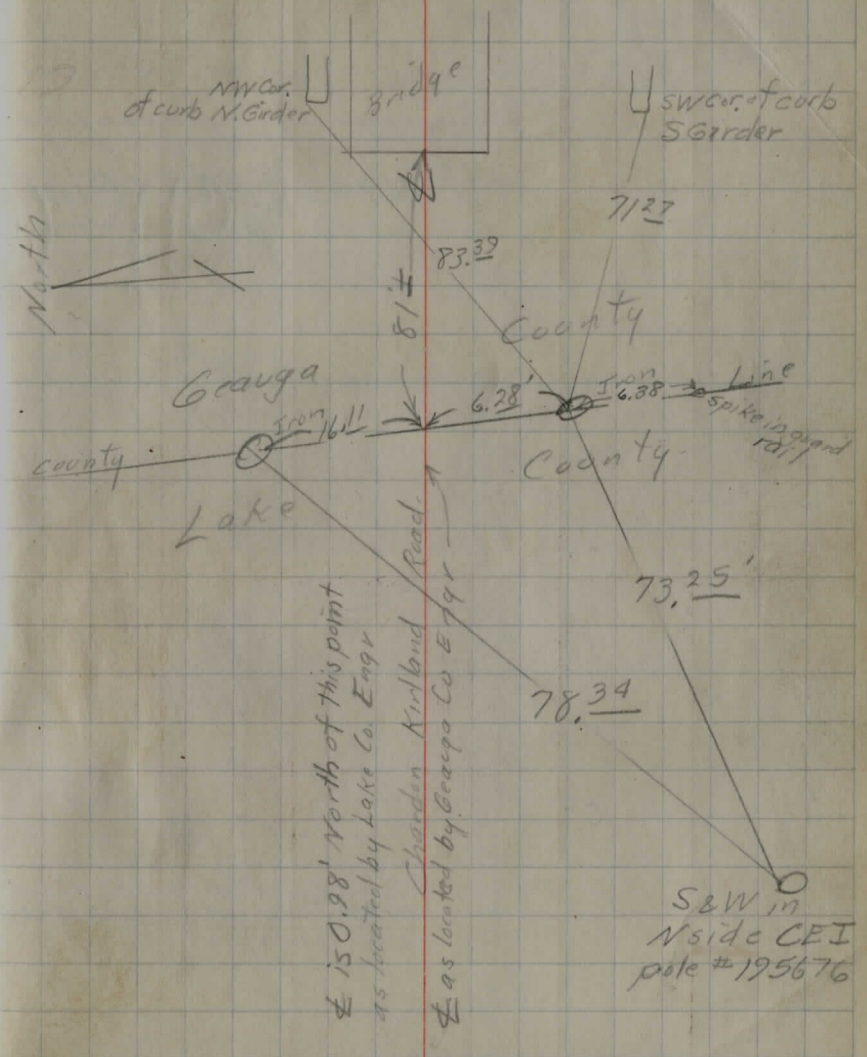 Bridge
NW Cor.
of curb N. Girder
SW Cor. of curb
S Girder
71 27
North
83.39
81'±
℄
County
Geauga
Iron
16.11
6.28'
Iron
6.38
Line
Spike in guard
rail
County
County
Lake
73.25'
78.34
℄ is 0.98' North of this point
as located by Lake Co. Engr
Chardon Kirtland Road
℄ as located by Geauga Co Engr
S&W in
N side CEI
pole #195676